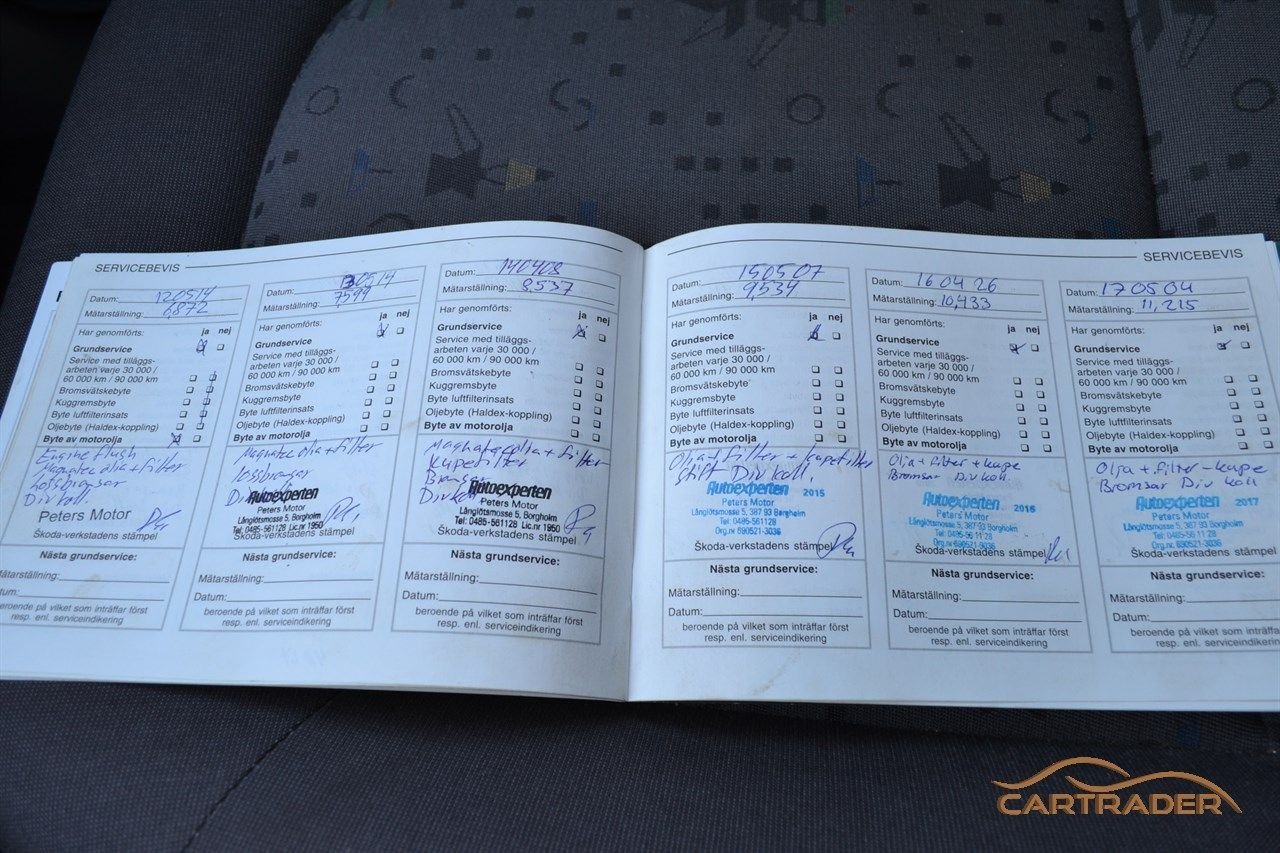 SERVICEBEVIS
Datum: 120514
Mätarställning: 6,872
Har genomförts: ja nej
Grundservice
Service med tilläggs-
arbeten varje 30 000 /
60 000 km / 90 000 km
Bromsvätskebyte
Kuggremsbyte
Byte luftfilterinsats
Oljebyte (Haldex-koppling)
Byte av motorolja
Engine flush
Magnatec olja+filter
Div koll.
Peters Motor
Škoda-verkstadens stämpel
Nästa grundservice:
Mätarställning:
tum:
beroende på vilket som inträffar först
resp. enl. serviceindikering
Datum: 130514
Mätarställning: 7599
Har genomförts: ja nej
Grundservice
Service med tilläggs-
arbeten varje 30 000 /
60 000 km / 90 000 km
Bromsvätskebyte
Kuggremsbyte
Byte luftfilterinsats
Oljebyte (Haldex-koppling)
Byte av motorolja
Magnatec olja+filter
Autoexperten
Peters Motor
Långlötsmosse 5, Borgholm
Tel: 0485-561128 Lic.nr 1950
Škoda-verkstadens stämpel
Nästa grundservice:
Mätarställning:
Datum:
beroende på vilket som inträffar först
resp. enl. serviceindikering
Datum: 140408
Mätarställning: 8,537
Har genomförts: ja nej
Grundservice
Service med tilläggs-
arbeten varje 30 000 /
60 000 km / 90 000 km
Bromsvätskebyte
Kuggremsbyte
Byte luftfilterinsats
Oljebyte (Haldex-koppling)
Byte av motorolja
Magnatec olja + filter
Kupefilter
Bromsar
Div koll
Autoexperten
Peters Motor
Långlötsmosse 5, Borgholm
Tel: 0485-561128 Lic.nr 1950
Škoda-verkstadens stämpel
Nästa grundservice:
Mätarställning:
Datum:
beroende på vilket som inträffar först
resp. enl. serviceindikering
SERVICEBEVIS
Datum: 150507
Mätarställning: 9,534
Har genomförts: ja nej
Grundservice
Service med tilläggs-
arbeten varje 30 000 /
60 000 km / 90 000 km
Bromsvätskebyte
Kuggremsbyte
Byte luftfilterinsats
Oljebyte (Haldex-koppling)
Byte av motorolja
Olja+filter + kupefilter
Stift Div koll.
Autoexperten 2015
Peters Motor
Långlötsmosse 5, 387 93 Borgholm
Tel: 0485-561128
Org.nr 690521-3036
Škoda-verkstadens stämpel
Nästa grundservice:
Mätarställning:
Datum:
beroende på vilket som inträffar först
resp. enl. serviceindikering
Datum: 16 04 26
Mätarställning: 10,433
Har genomförts: ja nej
Grundservice
Service med tilläggs-
arbeten varje 30 000 /
60 000 km / 90 000 km
Bromsvätskebyte
Kuggremsbyte
Byte luftfilterinsats
Oljebyte (Haldex-koppling)
Byte av motorolja
Olja + filter + kupe
Bromsar Div koll.
Autoexperten 2016
Peters Motor
Långlötsmosse 5, 387 93 Borgholm
Tel: 0485-56 11 28
Org.nr 690521-3036
Škoda-verkstadens stämpel
Nästa grundservice:
Mätarställning:
Datum:
beroende på vilket som inträffar först
resp. enl. serviceindikering
Datum: 17 05 04
Mätarställning: 11,215
Har genomförts: ja nej
Grundservice
Service med tilläggs-
arbeten varje 30 000 /
60 000 km / 90 000 km
Bromsvätskebyte
Kuggremsbyte
Byte luftfilterinsats
Oljebyte (Haldex-koppling)
Byte av motorolja
Olja + filter - kupe
Bromsar Div koll
Autoexperten 2017
Peters Motor
Långlötsmosse 5, 387 93 Borgholm
Tel: 0485-56 11 28
Org.nr 690521-3036
Škoda-verkstadens stämpel
Nästa grundservice:
Mätarställning:
Datum:
beroende på vilket som inträffar först
resp. enl. serviceindikering
CARTRADER